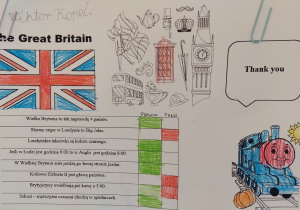 Wiktor Kopeć
The Great Britain
Thank you
PRAWDA FAŁSZ
Wielka Brytania to tak naprawdę 4 państwa.
Słynny zegar w Londynie to Big John.
Londyńskie taksówki są koloru czarnego.
Jeśli w Łodzi jest godzina 9.00 to w Anglii jest godzina 8.00
W Wielkiej Brytanii auta jeżdżą po lewej stronie jezdni.
Królowa Elżbieta II jest głową państwa.
Brytyjczycy uwielbiają pić kawę o 5.00.
Szkoci – mężczyźni czasami chodzą w spódnicach.